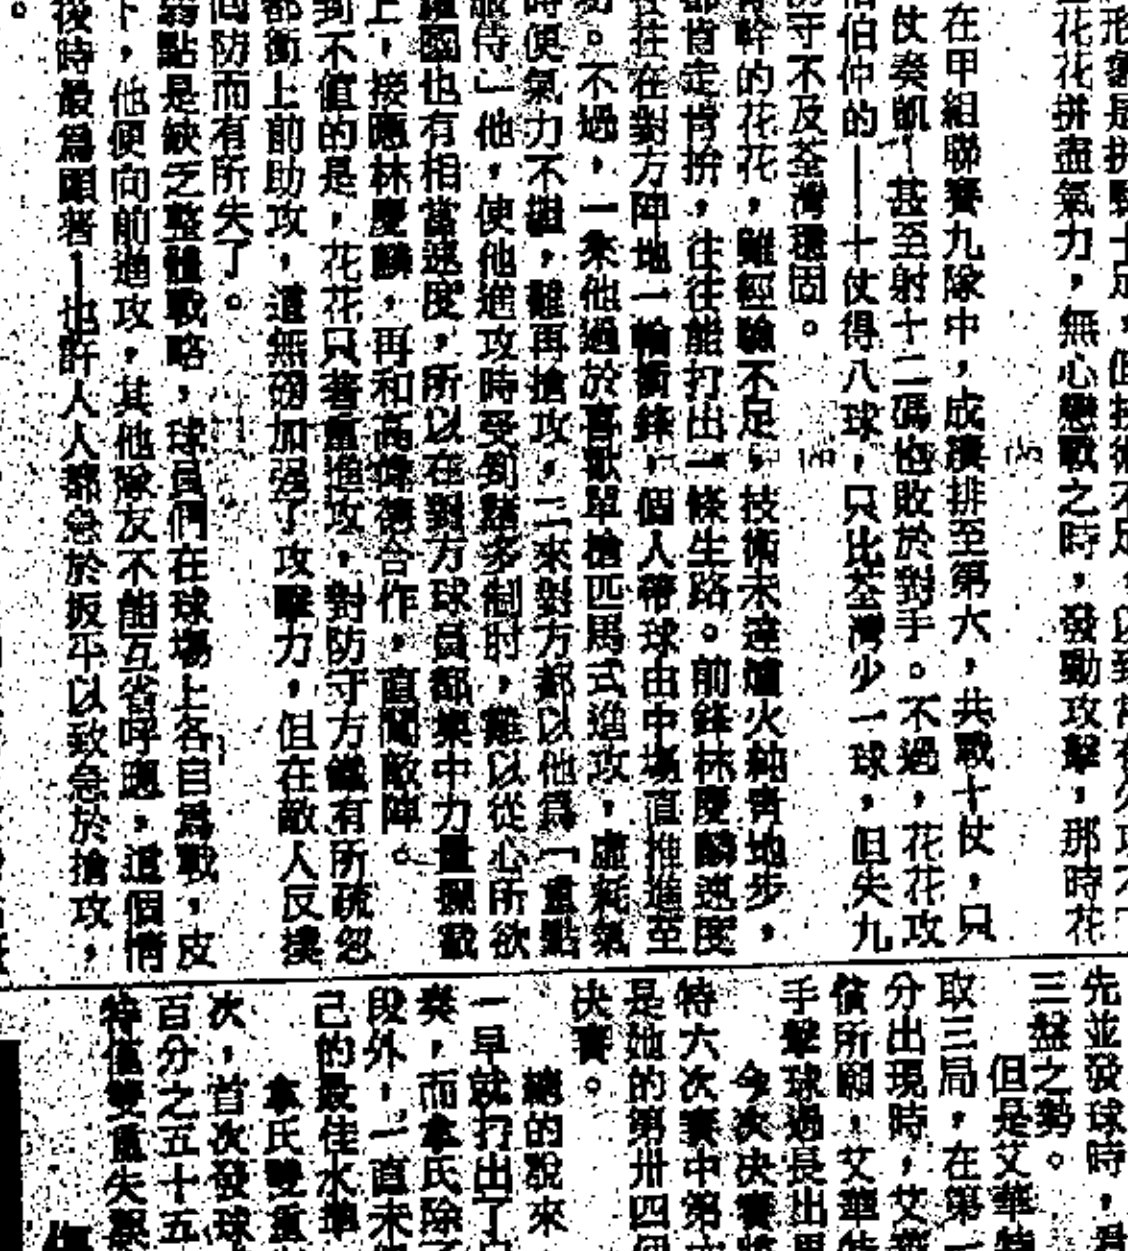 形
花花拼盡氣力，無心戀戰之時，發動攻擊，那時花
在甲組聯賽九隊中，成績排至第六，共戰十仗，只
仗奏凱，甚至射十二碼也敗於對手。不過，花花攻
伯仲的——十仗得八球，只比荃灣少一球，但失九
守不及荃灣穩固。
幹的花花，雖經驗不足，技術未達爐火純青地步，
都肯走肯拚，往往能打出一條生路。前鋒林慶麟速度
往往在對方陣地一輪衝鋒，個人帶球由中場直推進至
。不過，一來他過於喜歡單槍匹馬式進攻，虛耗氣
時便氣力不繼，難再搶攻，二來對方都以他為「重點
服侍」他，使他進攻時受到諸多制肘，難以從心所欲
國也有相當速度，所以在對方球員都集中力量攔截
上，接應林慶麟，再和高偉德合作，直闖敵陣。
到不值的是，花花只著重進攻，對防守方面有所疏忽
都衝上前助攻，這無疑加强了攻擊力，但在敵人反撲
防而有所失了。
弱點是缺乏整體戰略，球員們在球場上各自為戰，皮
下，他便向前進攻，其他隊友不能互省呼應，這個情
後時最為顯著，也許人人都急於扳平以致急於搶攻，
。
先並發球時，
三盤之勢。
但是艾華特
取三局，在第一
分出現時，艾華
償所願，艾華特
手擊球過長出界
今次決賽
特六次賽中第
是她的第卅四個
決賽。
總的說來
一早就打出了
奏，而拿氏除了
段外，一直未
己的最佳水準
拿氏雙重
次，首次發球
百分之五十五
特僅雙重失誤